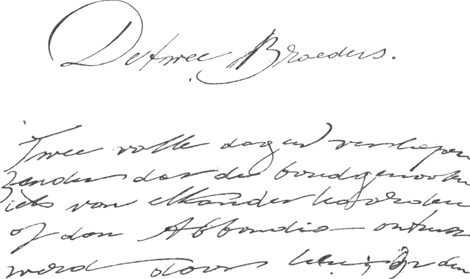 De twee Broeders.
Twee volle dagen verliepen
zonder dat de bondgenoote
iets van elkander hoorden
of dan Abbondio ontrus
werd door